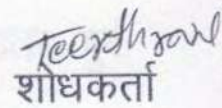 Teerthram
शोधकर्ता